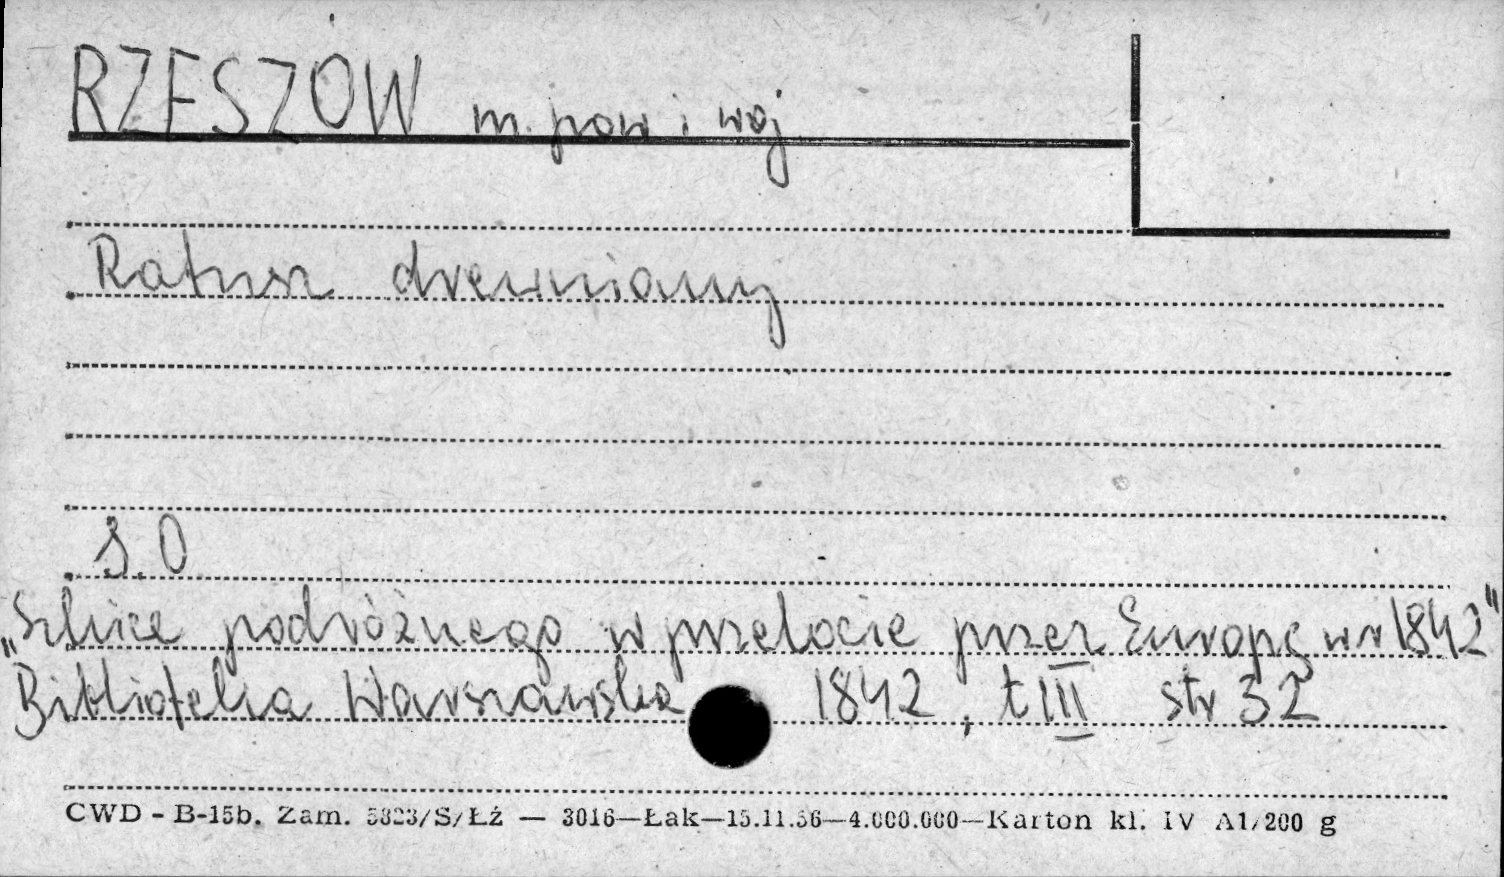 RZESZOW m. pow i woj
Ratusz drewniany
S.O
„Szkice podróżnego w przelocie przez Europę w r 1842"
Biblioteka Warszawska 1842, t III str 32
CWD - B-15b. Zam. 5823/S/Łź — 3016—Łak—15.11.56—4.000.000—Karton kl. IV A1/200 g